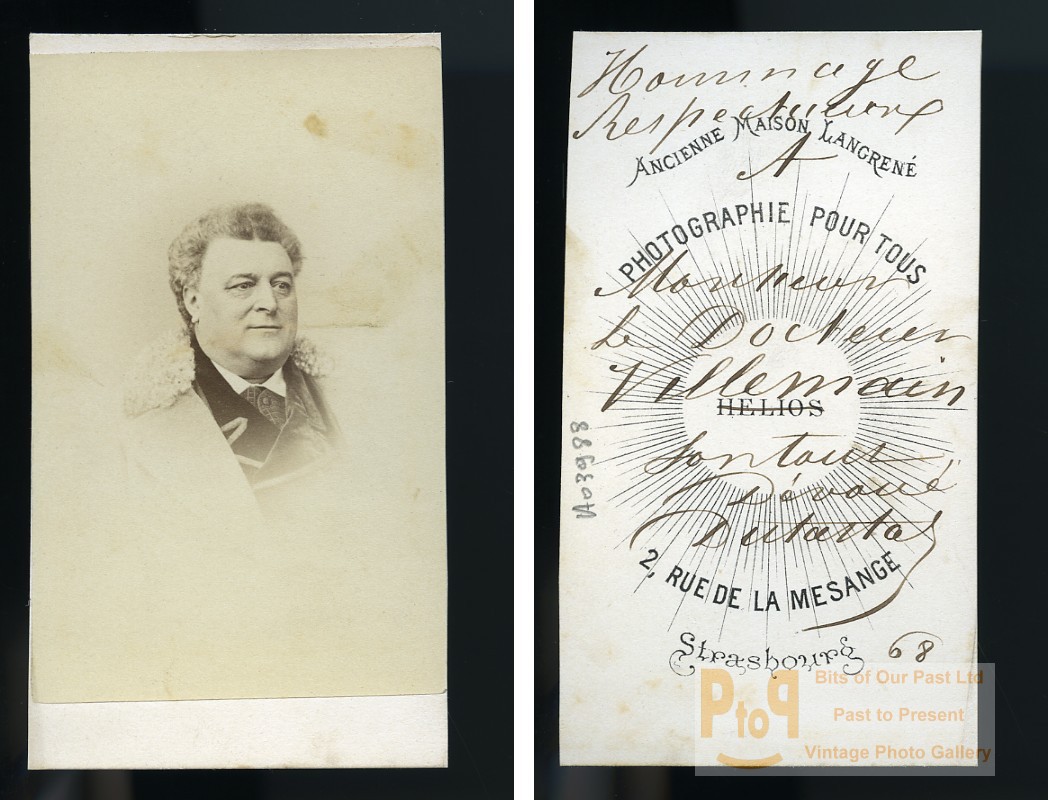 Hommage
Respectueux
ANCIENNE MAISON LANGRENÉ
A
PHOTOGRAPHIE POUR TOUS
Monsieur
le Docteur
Villemain
HELIOS
Son tout
Dévoué
2, RUE DE LA MESANGE
Strasbourg
68
A03988
PtoP
Bits of Our Past Ltd
Past to Present
Vintage Photo Gallery